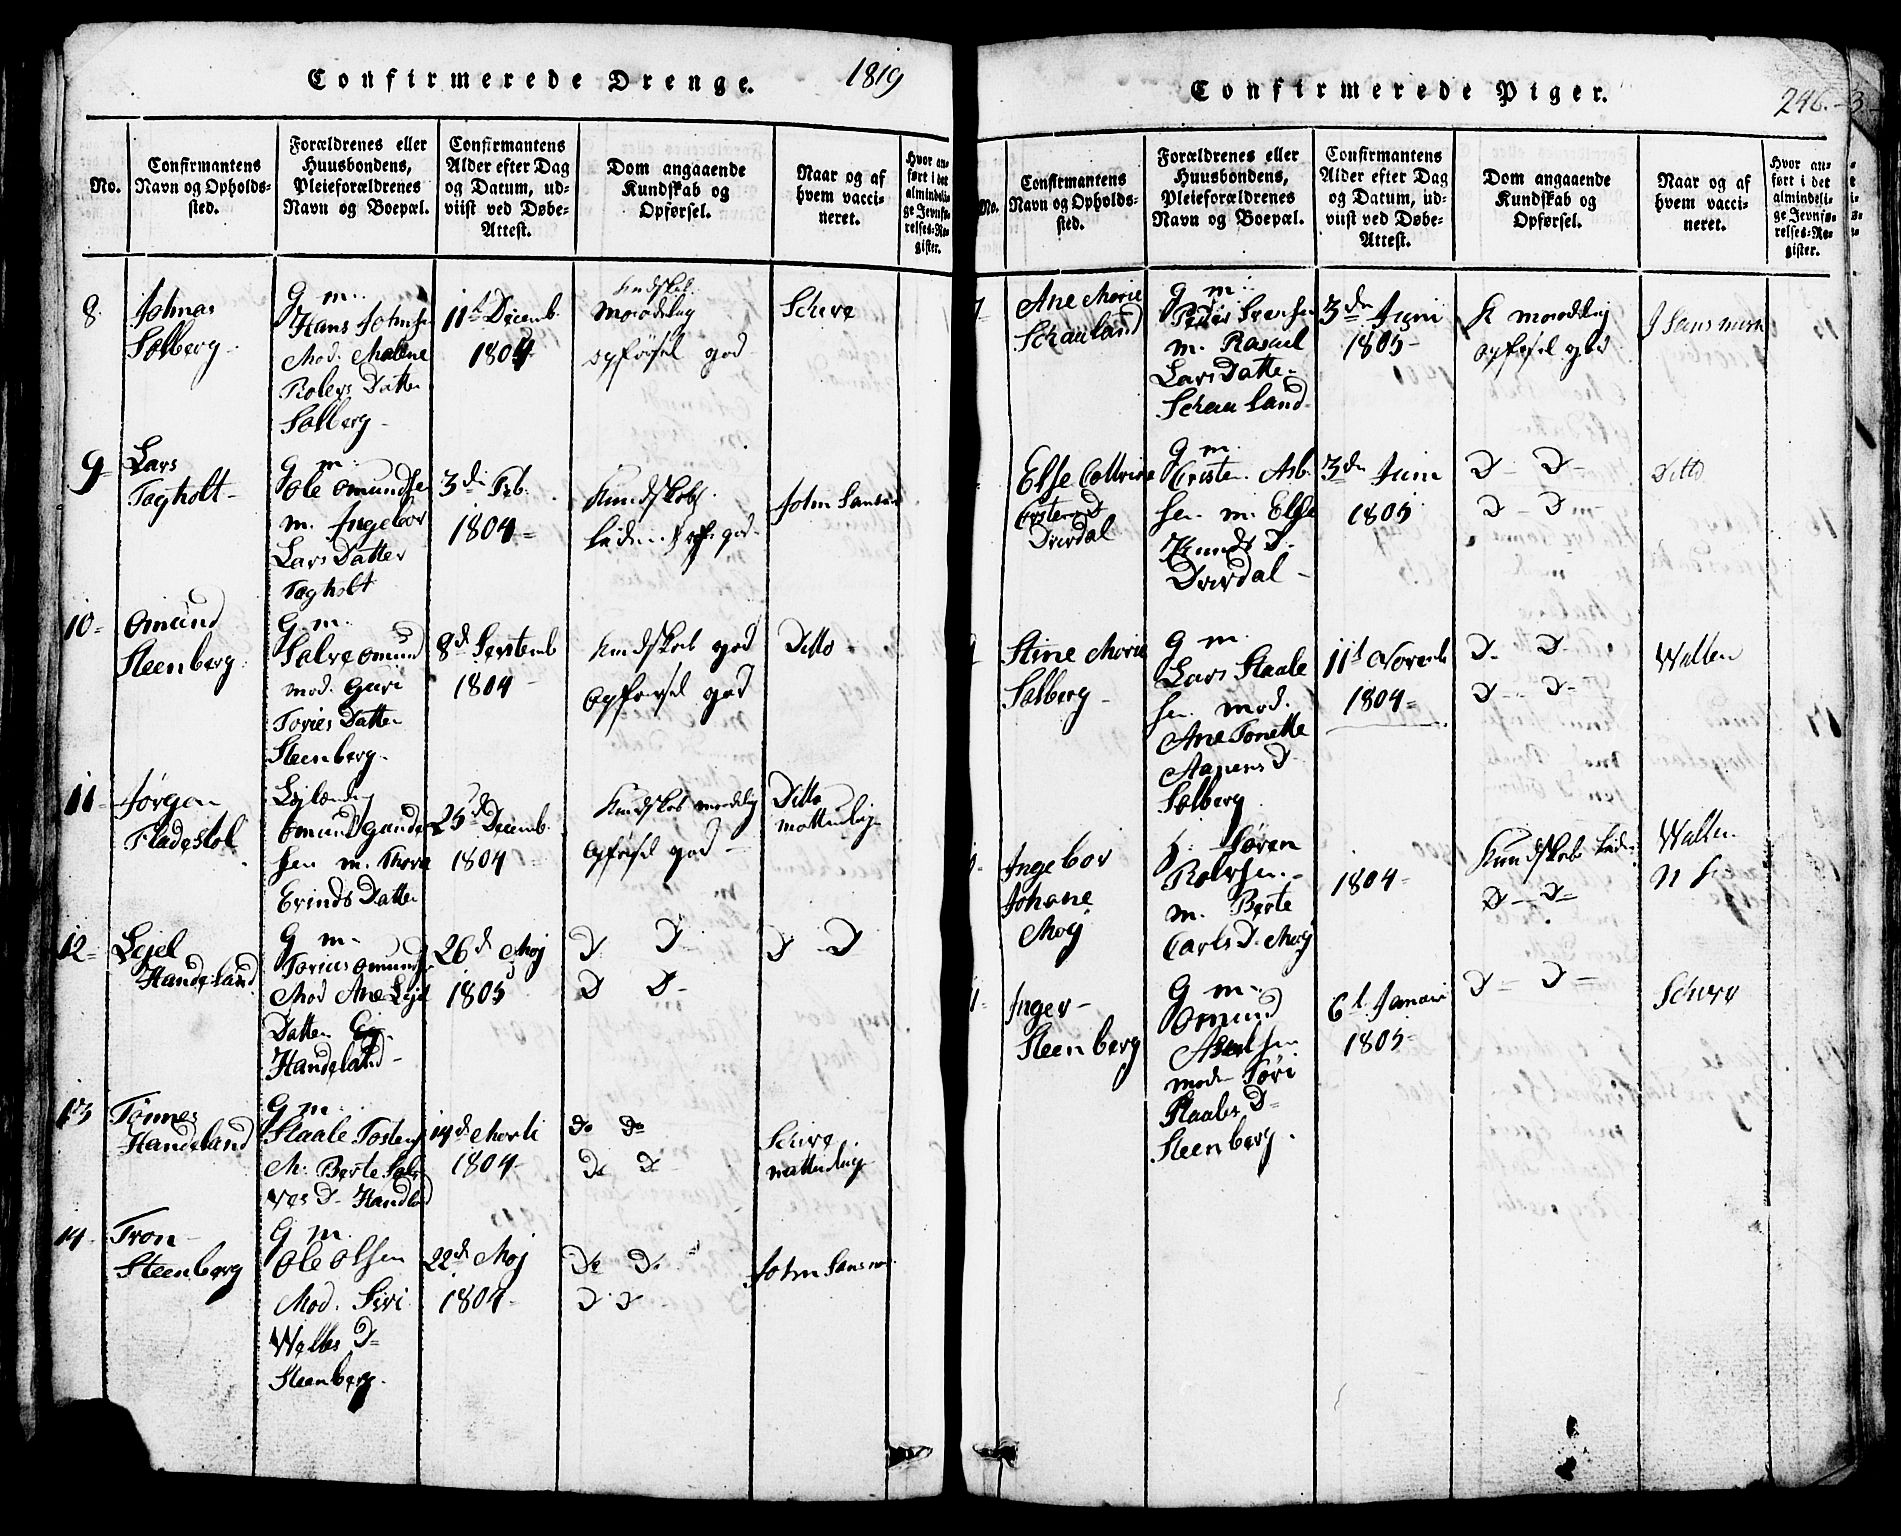 Confirmerede Drenge.
1819
No.
Confirmantens
Navn og Opholds-
sted.
Forældrenes eller
Huusbondens,
Pleieforældrenes
Navn og Boepæl.
Confirmantens
Alder efter Dag
og Datum, ud-
viist ved Døbe-
Attest.
Dom angaaende
Kundskab og
Opførsel.
Naar og af
hvem vacci-
neret.
Hvor an-
ført i det
almindeli-
ge Jevnfø-
relses-Re-
gister.
8.
Johnas
Solberg
G m.
Hans Johns
Mod. Malene
Rolevs Datter
Solberg
11te Decemb.
1804
Kundskab
maadelig
opførsel god
Schive
9
Lars
Tagholt
G m.
Ole Omundse
m. Ingebor
Lars Datter
Tagholt
3de Feb.
1804
Kundskabs
god
John Sans
10
Omund
Steenberg
G. m.
Salve Omund
mod. Guri
Tories Datter
Steenberg
8d Septemb
1804
Kundskab god
Opførsel god
Ditto
11
Jørgen
Fladestol
Omund Gunder
sen m. Thore
Erinds Datter
25d Decemb.
1804
Kundskab maadelig
Opførsel god
Ditto
12
Lejel
Handeland
G m.
Torius Omunds
Mod Ane Lejel
Datter
Handeland
26d Maj
1805
D D
D D
D D
13
Tønnes
Handeland
G m.
Staale Tostens
M. Berte Sal
ves D. Handlad
14d Marti
1804
Do Do
Do D
Schive
14
Tron
Steenberg
G m.
Ole Olsen
Mod. Siri
Welles D
Steenberg.
22d Maj
1804
Do Do
D D
John Sans
Confirmerede Piger.
246.
3
No.
Confirmantens
Navn og Opholds-
sted.
Forældrenes eller
Huusbondens,
Pleieforældrenes
Navn og Boepæl.
Confirmantens
Alder efter Dag
og Datum, ud-
viist ved Døbe-
Attest.
Dom angaaende
Kundskab og
Opførsel.
Naar og af
hvem vacci-
neret.
Hvor an-
ført i det
almindeli-
ge Jevnfø-
relses-Re-
gister.
7
Ane Marie
Schauland
G m.
Peder Svensen
m. Rasael
Lars Datte
Schauland
3de Juni
1805
K maadelig
opførsel god
J Sans
Else Cathrine
Cristens D
Dverdal
G m.
Cristen Asb
sen m. Else
Knuds D
Dverdal
3de Juni
1805
D D
D D
Ditto
9
Stine Marie
Solberg
G m.
Lars Staale
sen mod.
Ane Tonette
Aanens D
Solberg
11t Novemb
1804
D. D.
D D
Wallen
Ingebor
Johane
Møj
Søren
Rolvsen
m. Berte
Carls D. Møj
1804
Kundskab
D D
Wallen
Inger
Steenberg
G m.
Omund
Asulsen
mod Tøri
Staales D
Steenberg.
6d Januar
1805
D D
Schive